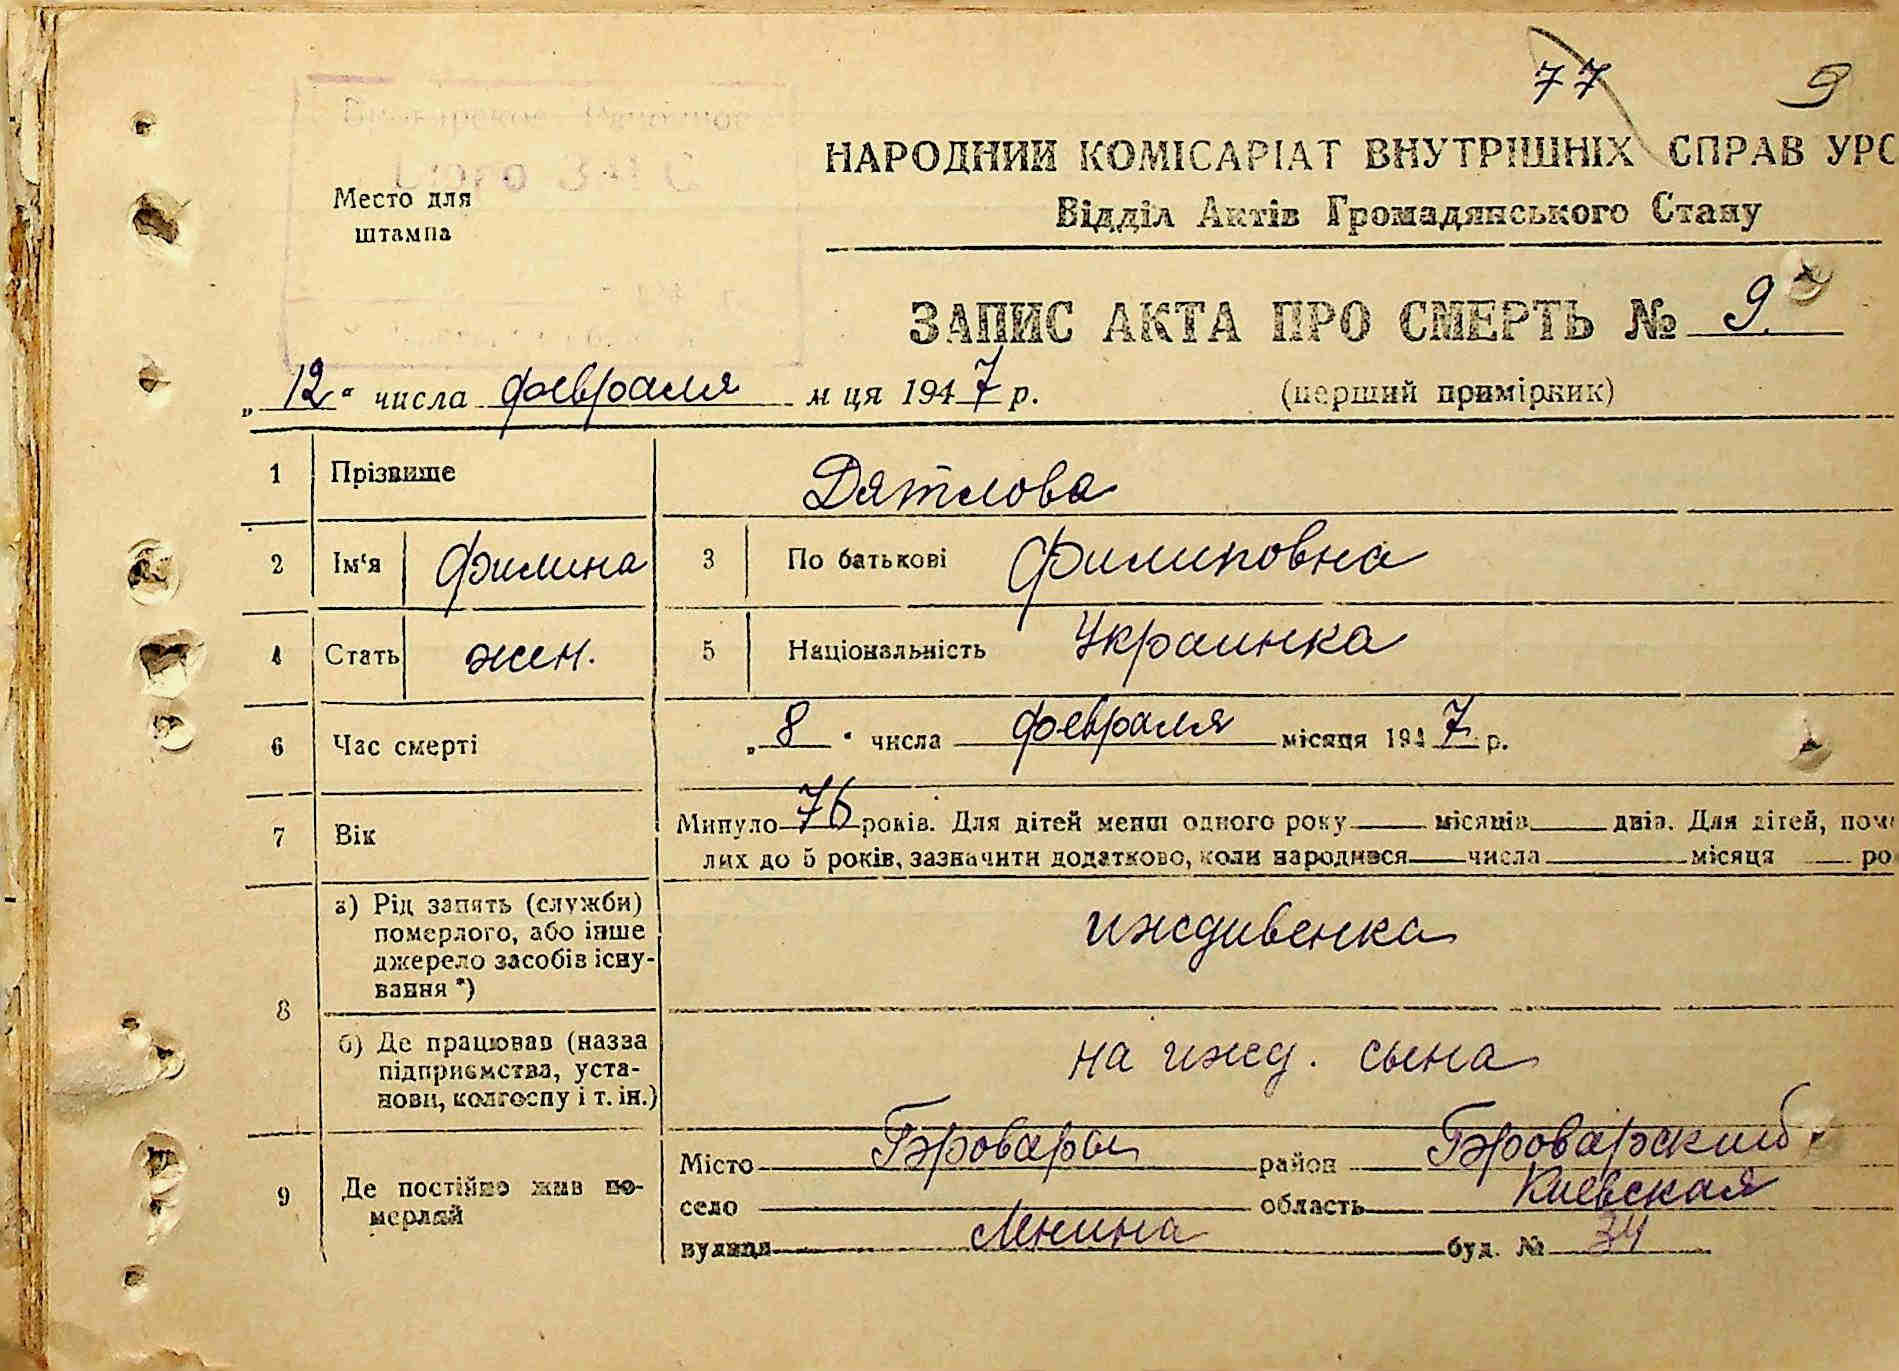 77 9
НАРОДНИЙ КОМІСАРІАТ ВНУТРІШНІХ СПРАВ УРС
Відділ Актів Громадянського Стану
Место для
штампа
ЗАПИС АКТА ПРО СМЕРТЬ № 9.
„12“ числа февраля м ця 1947 р. (перший примірник)
1 Прізвище Дятлова
2 Ім‘я Филина 3 По батькові Филиповна
4 Стать жен. 5 Національність Украинка
6 Час смерті „8“ числа февраля місяця 1947 р.
7 Вік Минуло 76 років. Для дітей менш одного року місяців днів. Для дітей, поме
лих до 5 років, зазначити додатково, коли народився числа місяця ро
8 а) Рід занять (служби)
померлого, або інше
джерело засобів існу-
вання *) иждивенка
б) Де працював (назва
підприємства, уста-
нови, колгоспу і т. ін.) на ижд. сына
9 Де постійно жив по-
мерлий
Місто Бровары район Броварский
село область Киевская
вулиця Ленина буд. № 34